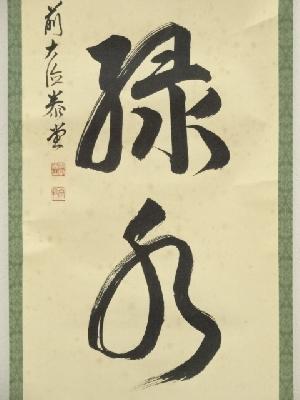 緑水
前大徳泰堂